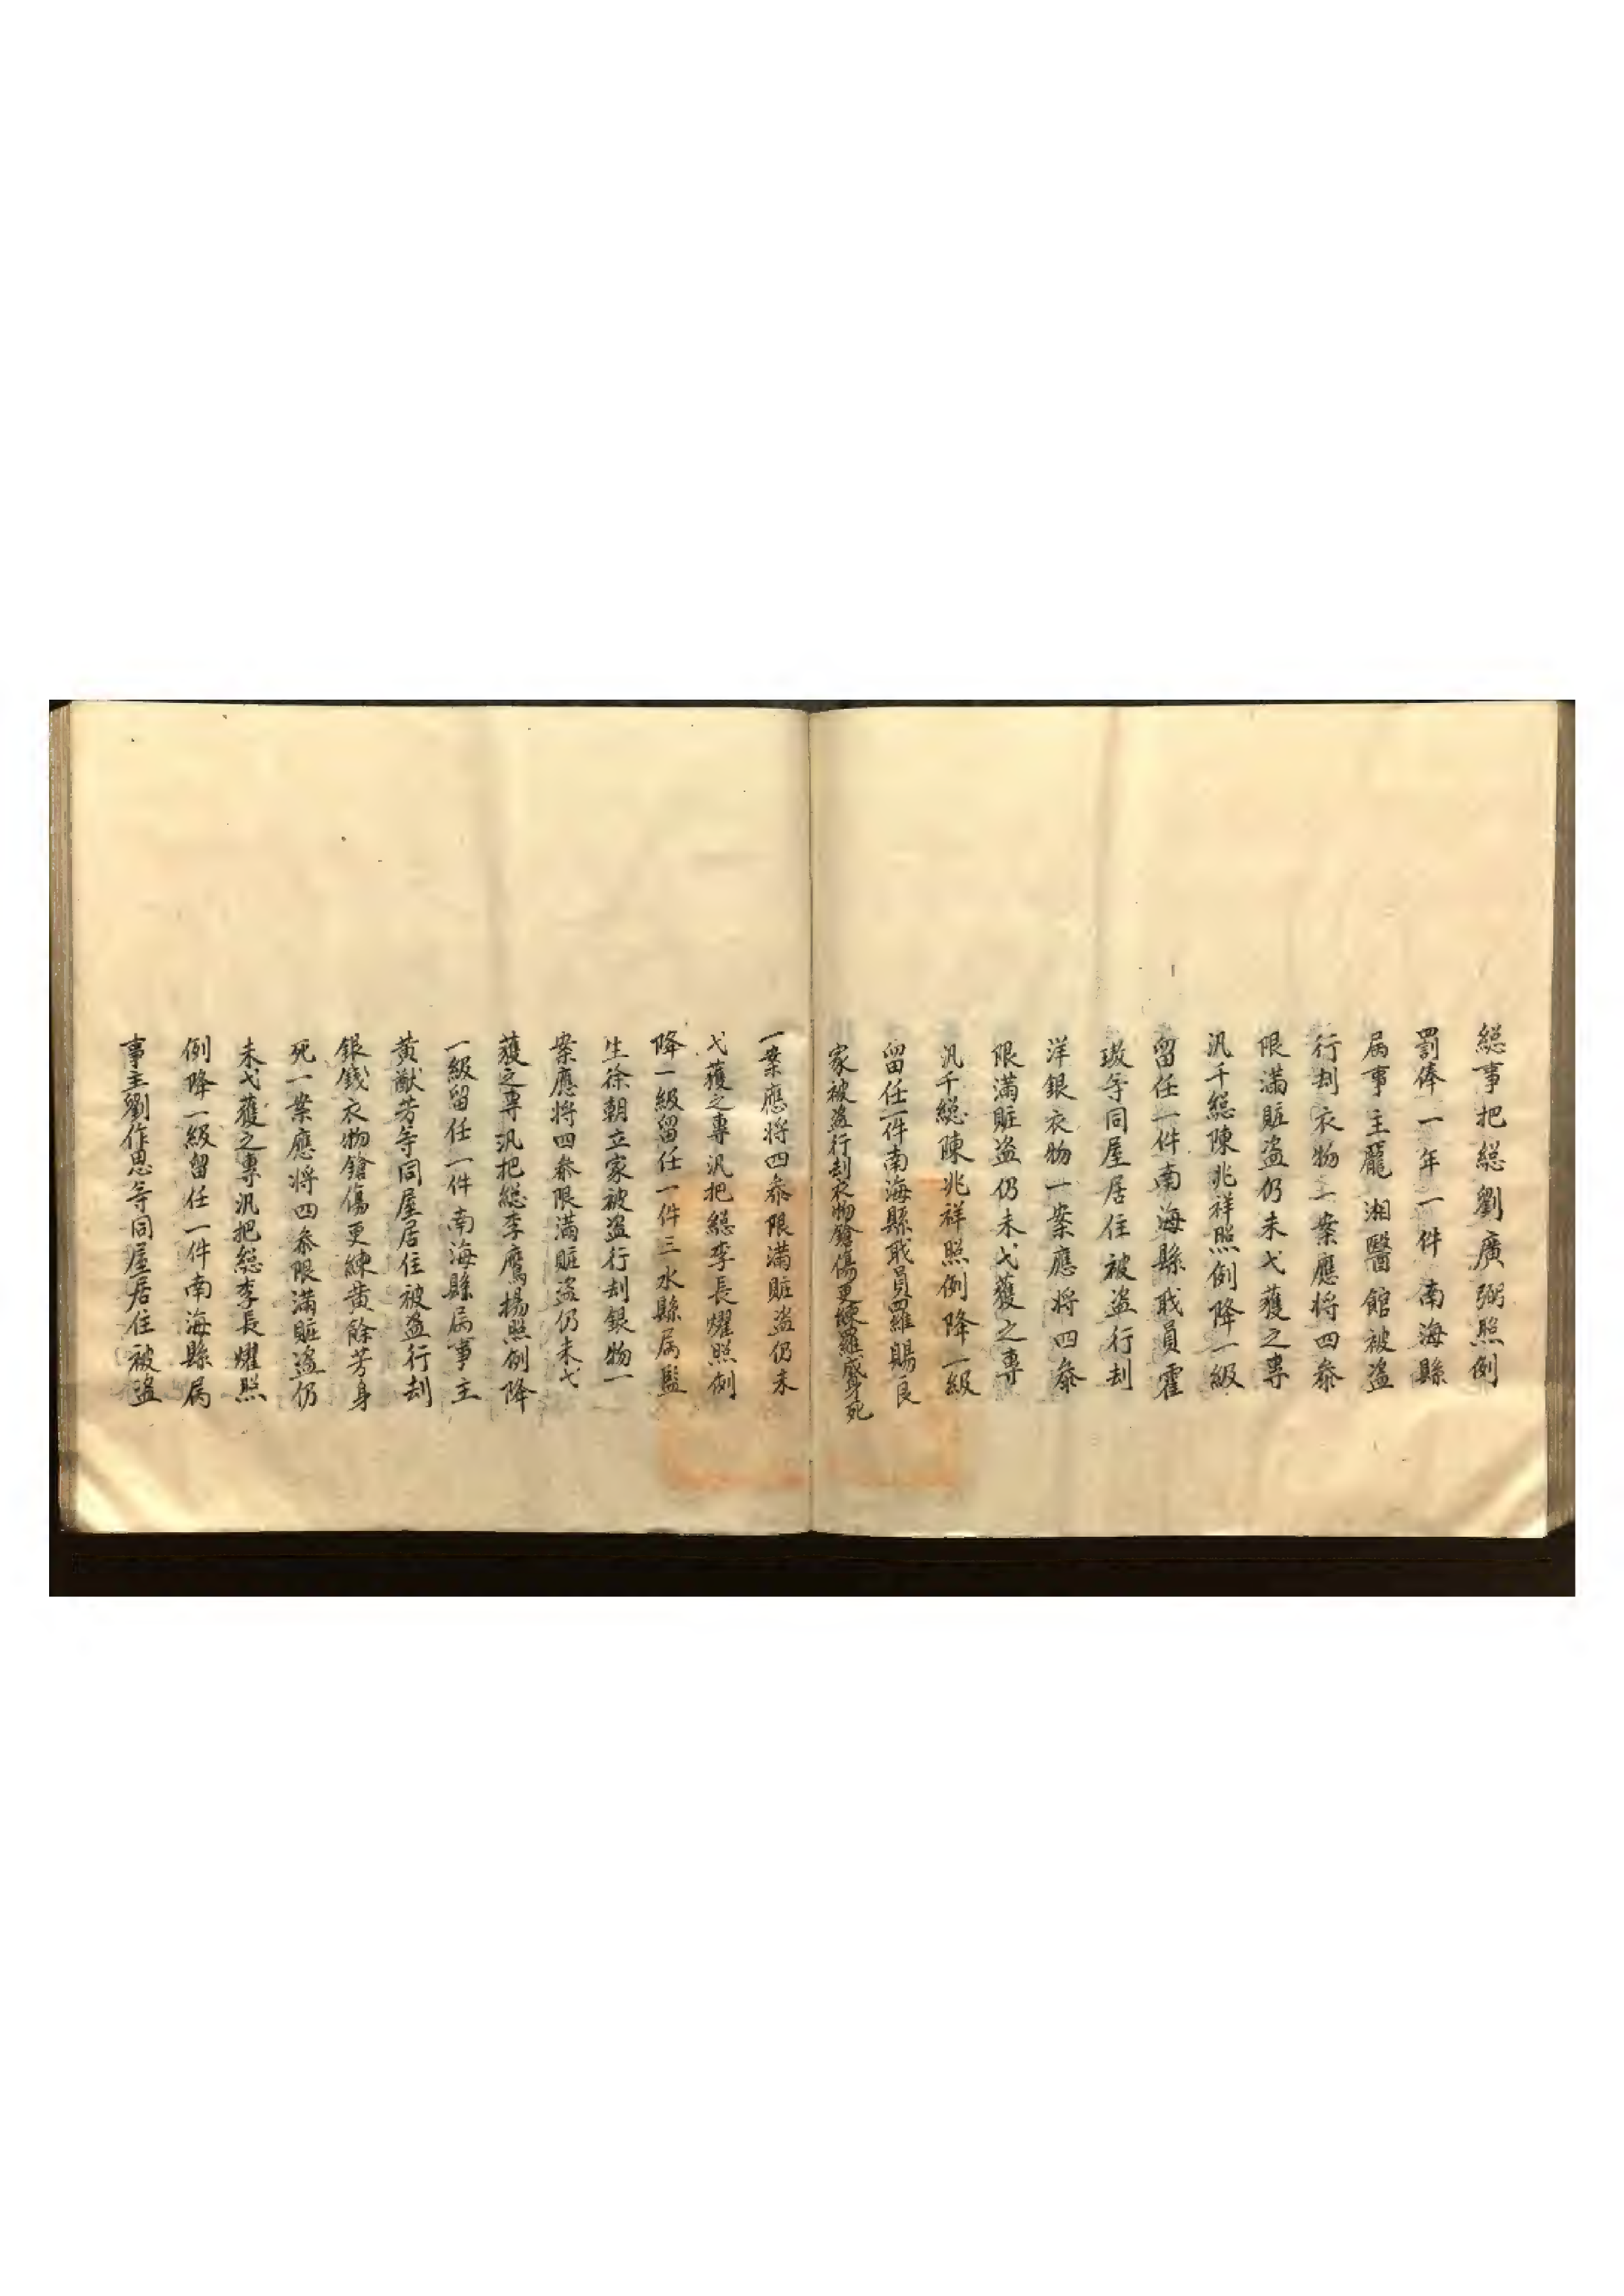 総事把総劉廣弼照例
罰俸一年一件南海縣
属事主龎湘醫館被盗
行刦衣物一案應将四叅
限滿賍盗仍未弋獲之專
汛千総陳兆祥照例降一級
留任一件南海縣戢員霍
璇等同屋居住被盗行刦
洋銀衣物一案應将四叅
限滿賍盗仍未弋獲之專
汛千総陳兆祥照例降一級
留任一件南海縣戢員羅賜良
家被盗行刦衣物鎗傷更練羅盛身死
一案應将四叅限滿賍盗仍未
弋獲之專汛把総李長燿照例
降一級留任一件三水縣属監
生徐朝立家被盗行刦銀物一
案應将四叅限滿賍盗仍未弋
獲之專汛把総李鷹揚照例降
一級留任一件南海縣属事主
黄猷芳等同屋居住被盗行刦
銀錢衣物鎗傷更練黄餘芳身
死一案應将四叅限滿賍盗仍
未弋獲之專汛把総李長燿照
例降一級留任一件南海縣属
事主劉作恩等同屋居住被盗